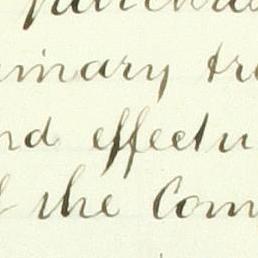 inary tre
nd effectu
the Com